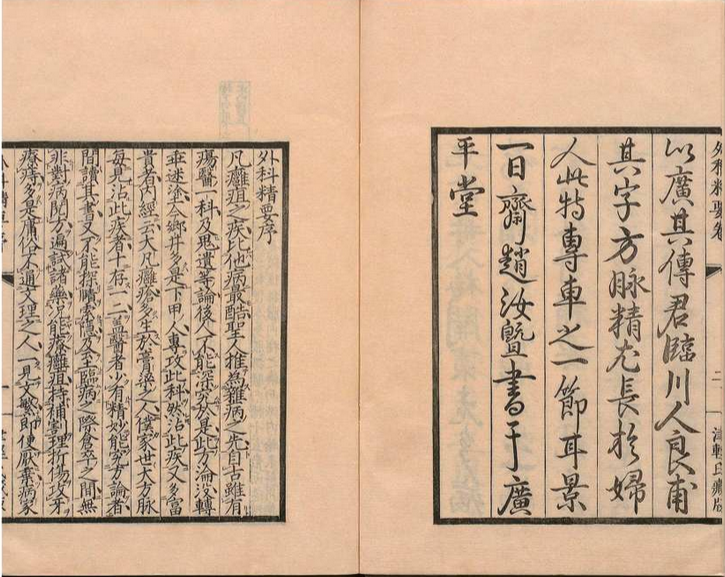 外科精要卷
以廣其傳君臨川人良甫
其字方脉精尤長於婦
人此特專車之一節耳景
一日齋趙汝曁書于廣
平堂
外科精要序
凡癰疽之疾比他病最酷聖人推為雜病之先自古雖有
瘍醫一科及鬼遺等論後人不能深究於是此方淪沒轉
乖迷塗今鄉井多是下甲人專攻此科然沾此疾又多富
貴者內經云大凡癰瘡多生於膏粱之人僕家世大方脉
每見沾此疾者十存一二蓋醫者少有精妙能究方論者
間讀其書又不能探賾索隱及至臨病之際倉卒之間無
非對病閱方遍試諸藥況能療癰疽持補割理折傷攻牙
療痔多是庸俗不通文理之人一見文繁即便厭棄病家